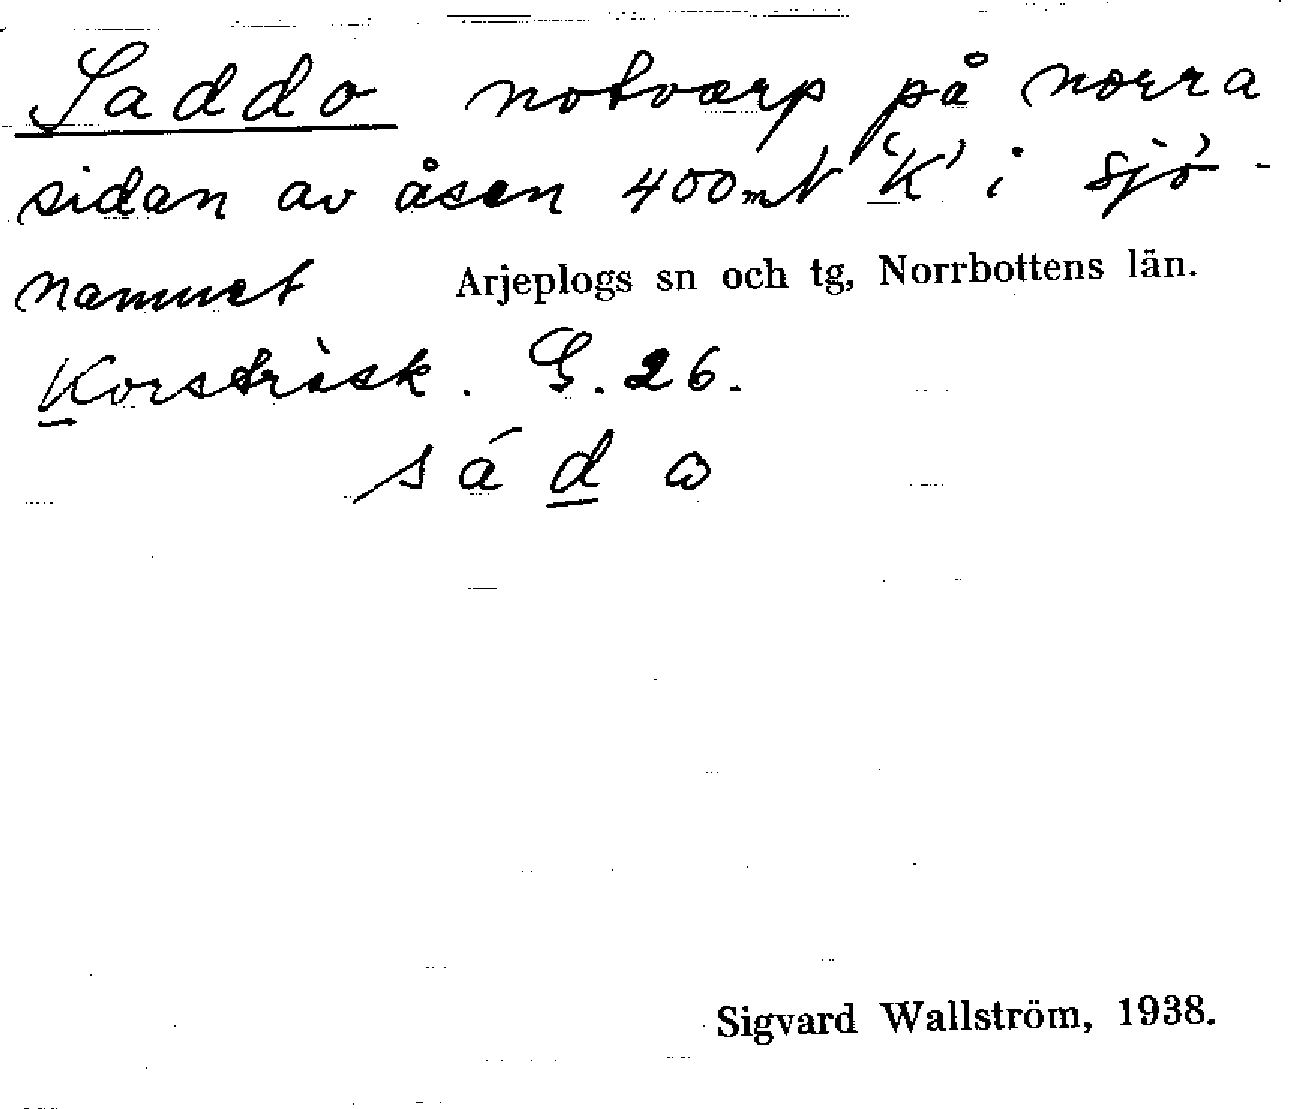 Saddo notvarp på norra
sidan av åsen 400 m N 'K' i sjö-
namnet Arjeplogs sn och tg, Norrbottens län.
Korsträsk. G. 26.
sádω
Sigvard Wallström, 1938.